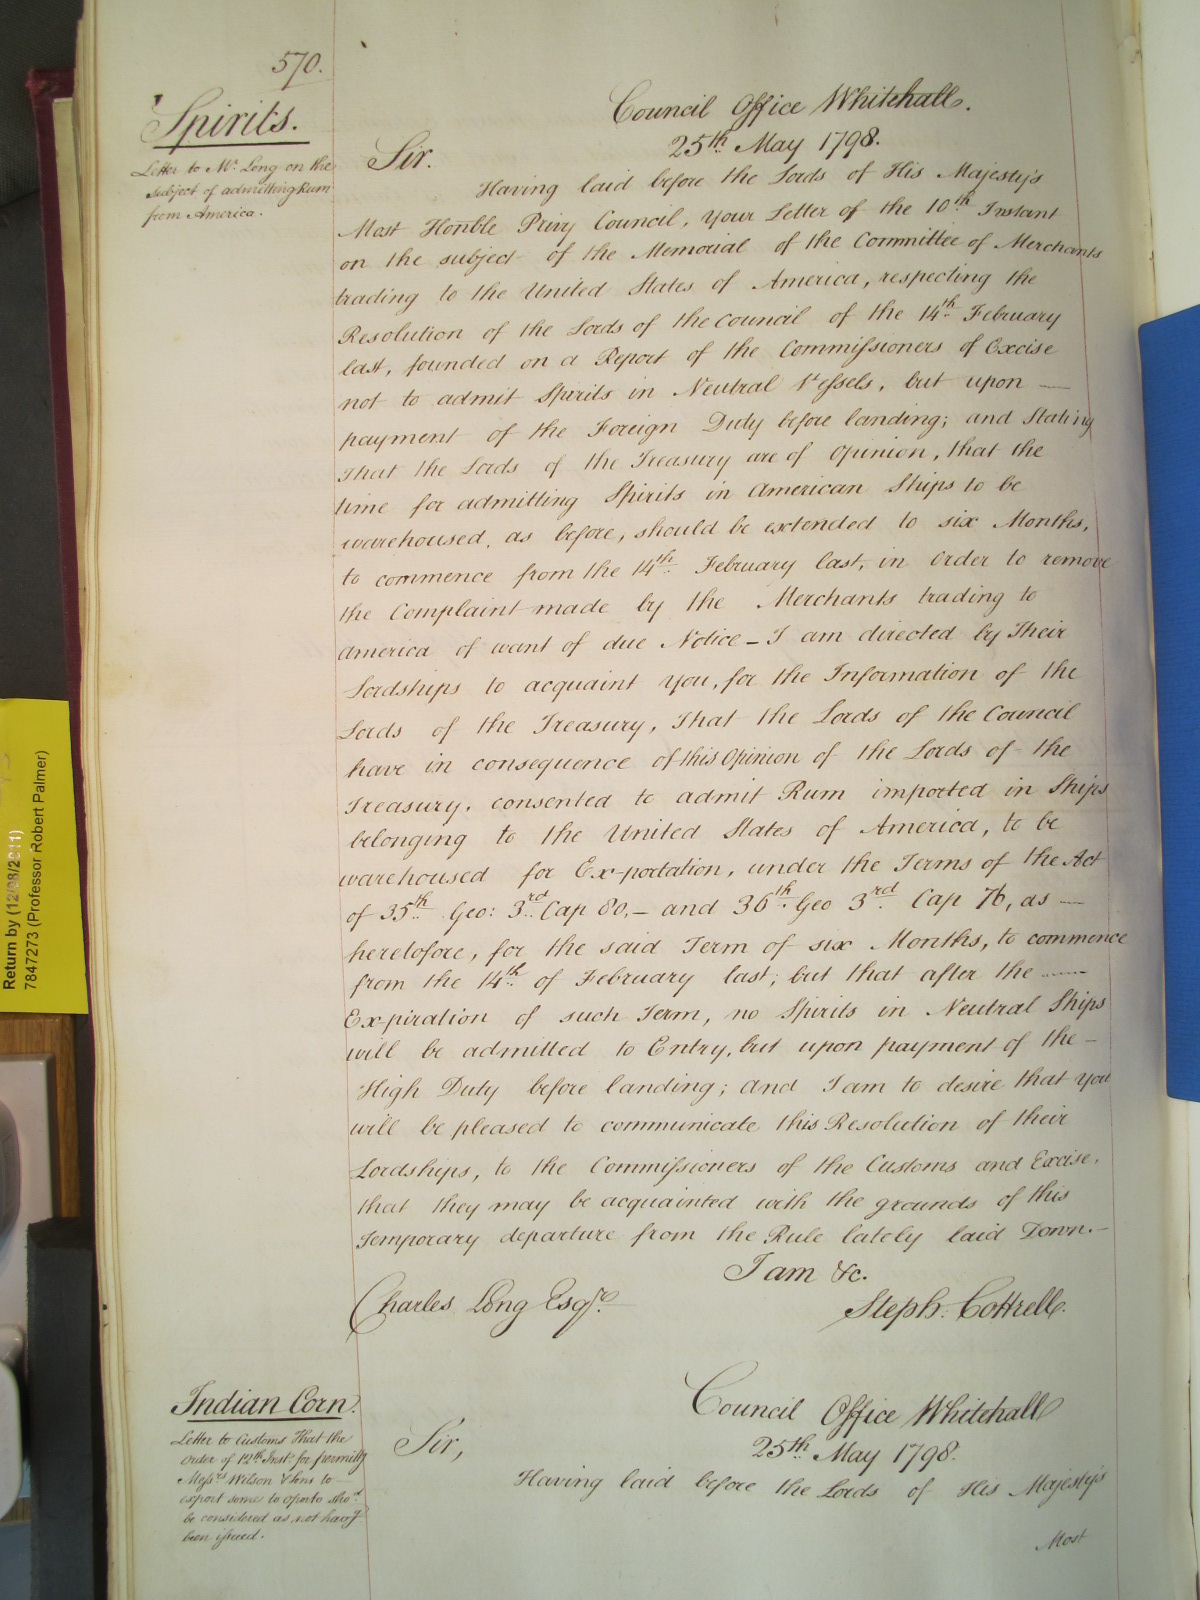 570.
Spirits.
Letter to Mr. Long on the
subject of admitting Rum
from America.
Council Office Whitehall.
25th. May 1798.
Sir.
Having laid before the Lords of His Majesty's
Most Honble Privy Council, your Letter of the 10th. Instant
on the subject of the Memorial of the Committee of Merchants
trading to the United States of America, respecting the
Resolution of the Lords of the Council of the 14th. February
last, founded on a Report of the Commissioners of Excise
not to admit Spirits in Neutral Vessels, but upon —
payment of the Foreign Duty before landing; and Stating
That the Lords of the Treasury are of Opinion, that the
time for admitting Spirits in American Ships to be
warehoused, as before, should be extended to six Months,
to commence from the 14th. February last, in Order to remove
the Complaint made by the Merchants trading to
America of want of due Notice – I am directed by Their
Lordships to acquaint you, for the Information of the
Lords of the Treasury, That the Lords of the Council
have in consequence of this Opinion of the Lords of the
Treasury, consented to admit Rum imported in Ships
belonging to the United States of America, to be
warehoused for Ex-portation, under the Terms of the Act
of 35th. Geo: 3rd. Cap 80. – and 36th. Geo 3rd. Cap 76, as —
heretofore, for the said Term of six Months, to commence
from the 14th. of February last; but that after the ——
Ex-piration of such Term, no Spirits in Neutral Ships
will be admitted to Entry, but upon payment of the –
High Duty before landing; and I am to desire that you
will be pleased to communicate this Resolution of their
Lordships, to the Commissioners of the Customs and Excise,
that they may be acquainted with the grounds of this
Temporary departure from the Rule lately laid Down. –
I am &c.
Charles Long Esqre.
Steph. Cottrell.
Indian Corn.
Letter to Customs That the
Order of 12th Inst. for permittg
Messrs Wilson & Sons to —
export some to Oporto shod.
be considered as not havg
been issued.
Council Office Whitehall
25th. May 1798.
Sir,
Having laid before the Lords of His Majesty's
Most
Return by (12/08/2011)
7847273 (Professor Robert Palmer)